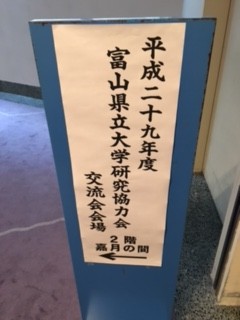 平成二十九年度
富山県立大学研究協力会
交流会会場
2階
嘉月の間
←